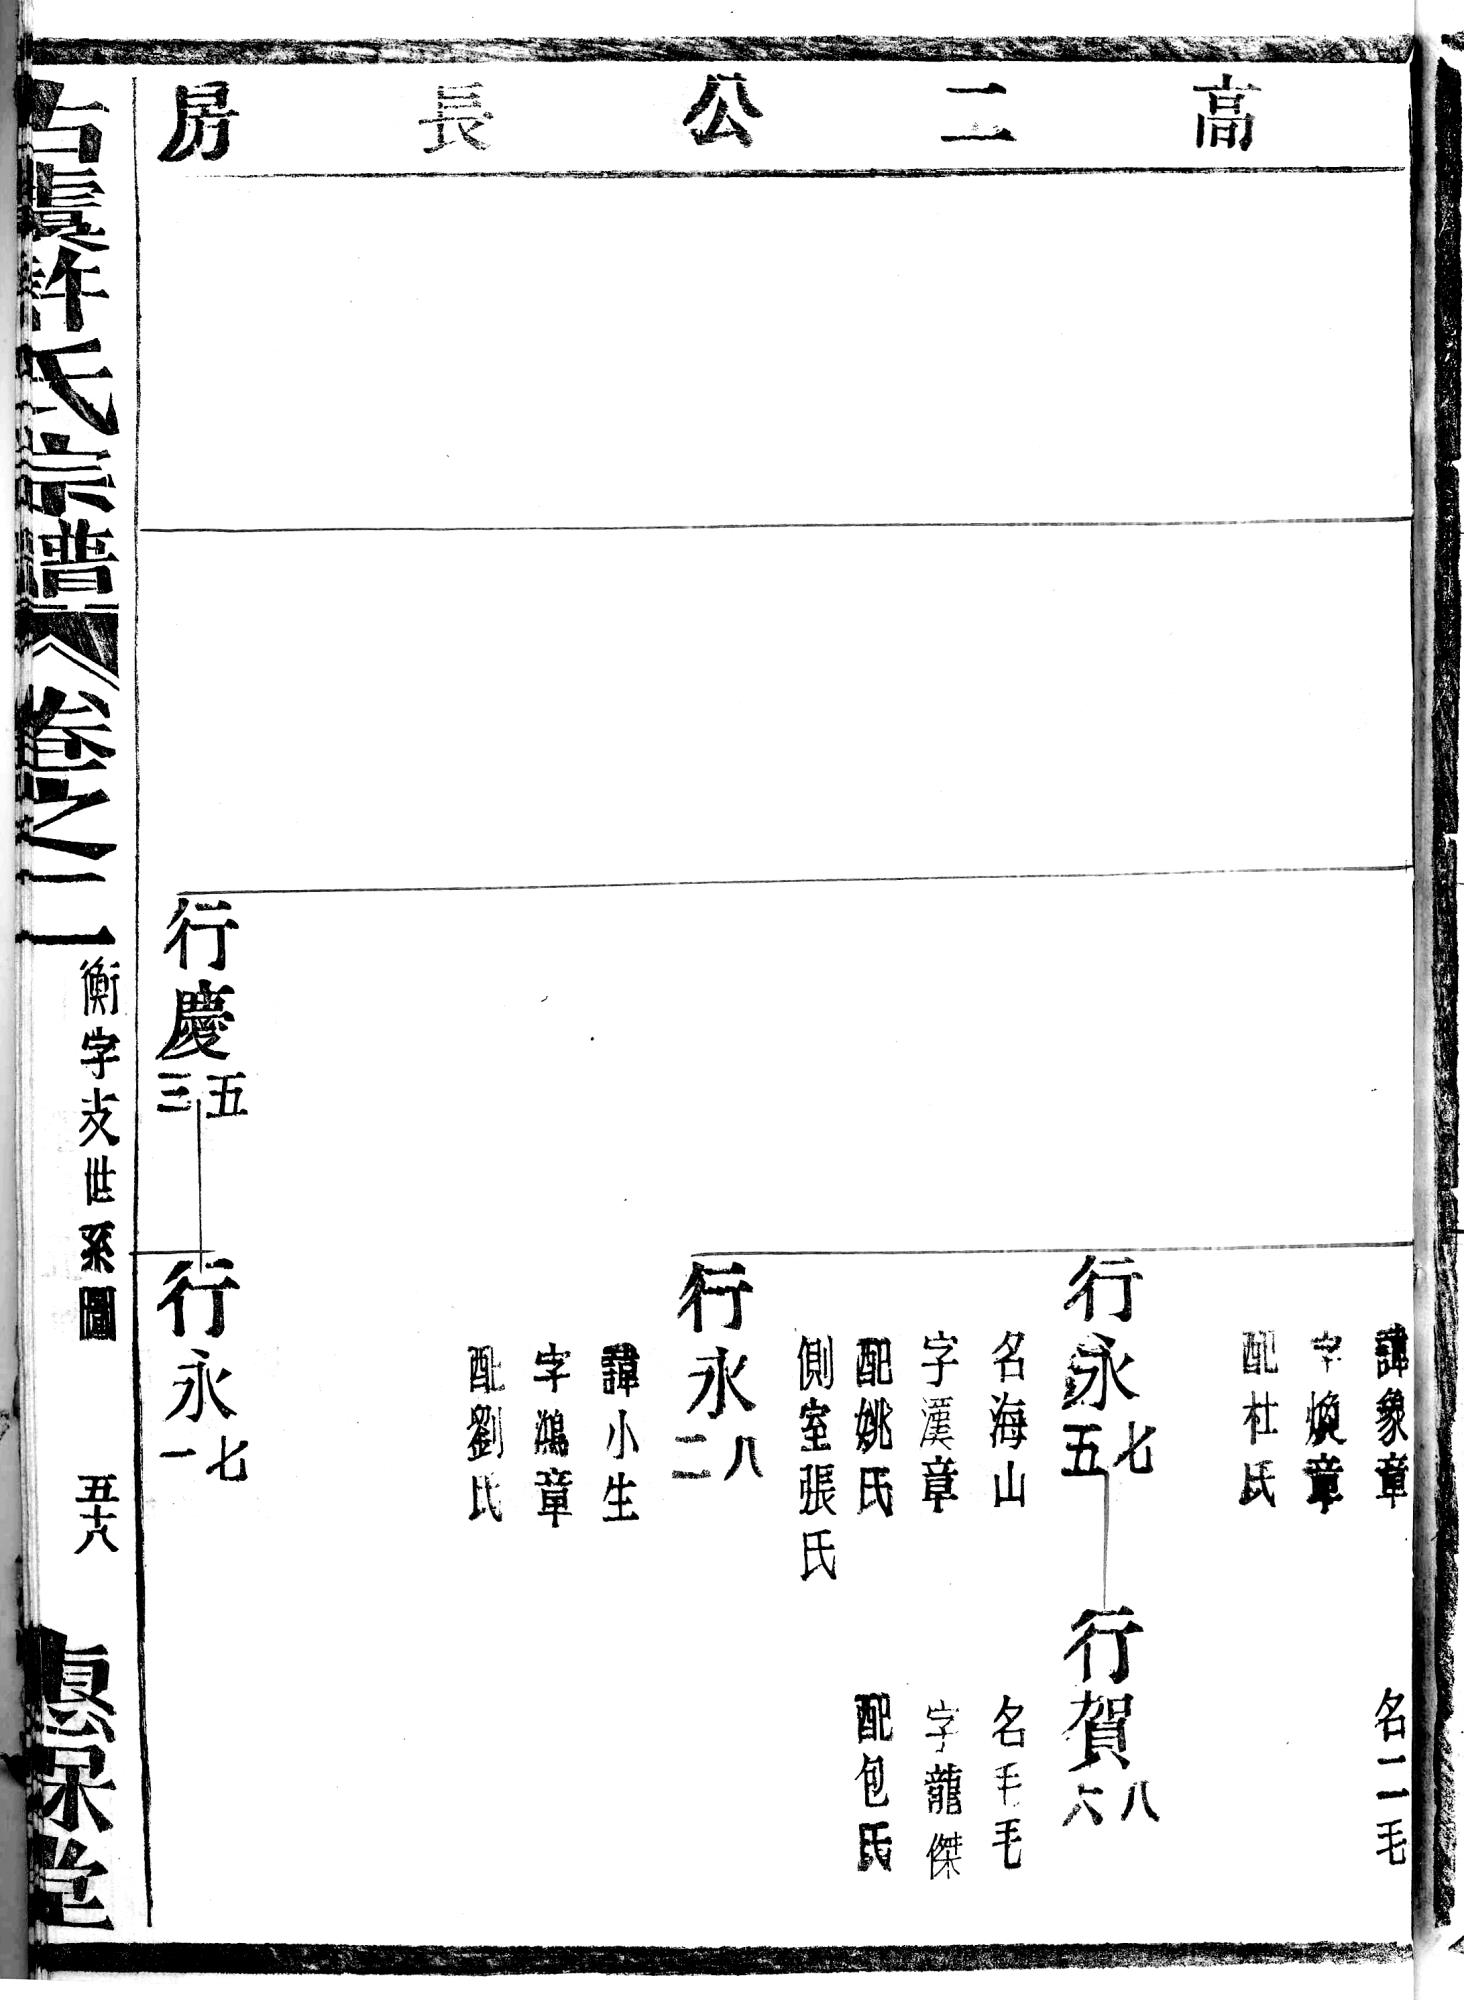 高二公長房
諱象章
字煥章
配杜氏
名二毛
行永七五
名海山
字漢章
配姚氏
側室張氏
行賀八六
名毛毛
字龍傑
配包氏
行永八二
諱小生
字鴻章
配劉氏
行慶五三
行永七一
古虞許氏宗譜
卷之二
衡字支世系圖
五十八